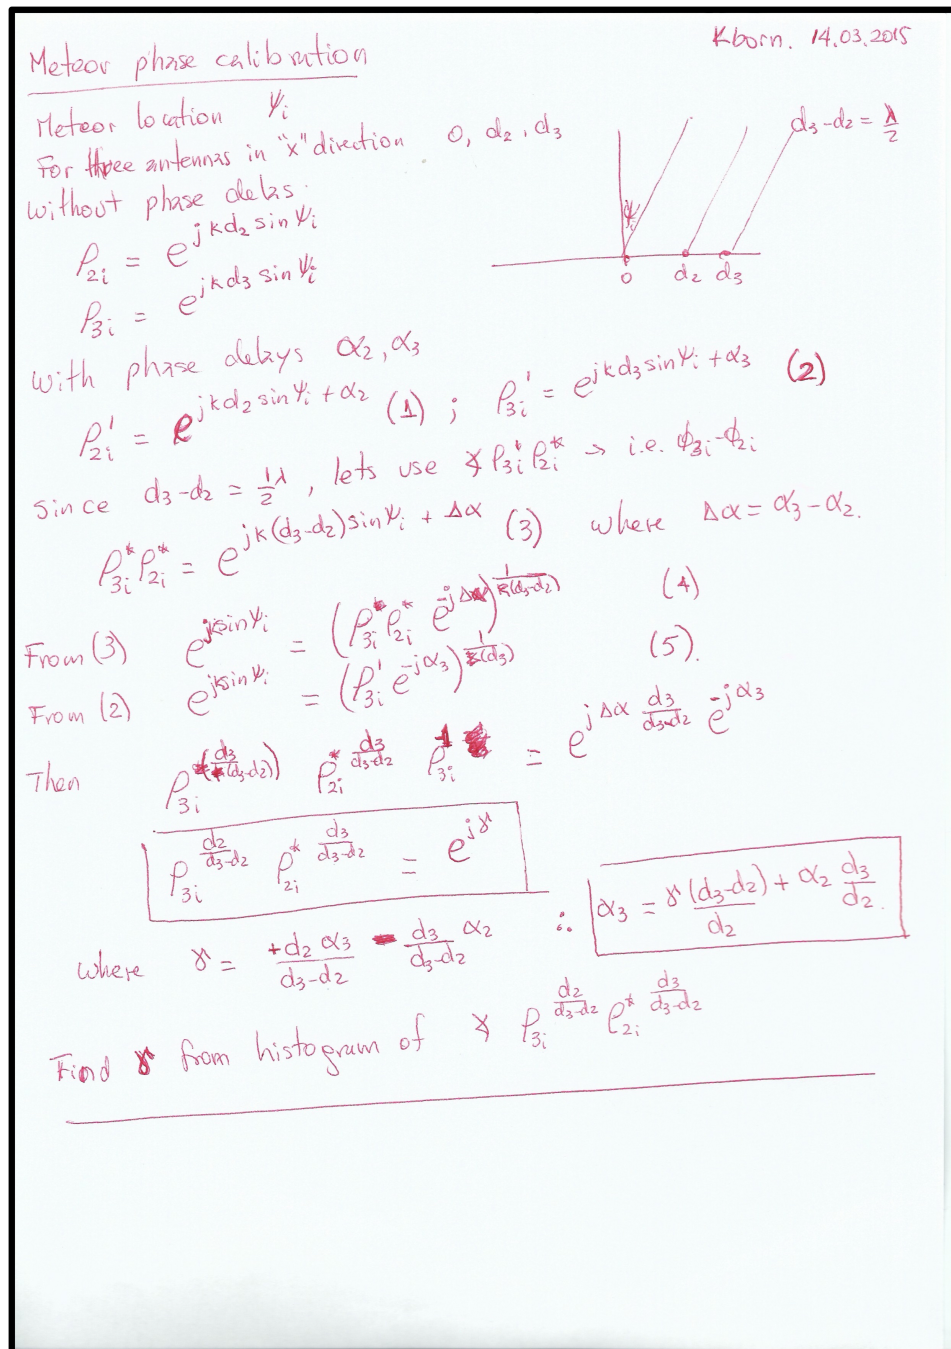 Kborn. 14.03.2015
Meteor phase calibration
Meteor location ψᵢ
For three antennas in "x" direction 0, d₂, d₃
without phase delas.
d₃-d₂ = λ/2
ψᵢ
0 d₂ d₃
ρ₂ᵢ = e^{jkd₂ sin ψᵢ}
ρ₃ᵢ = e^{jkd₃ sin ψᵢ}
with phase delays α₂, α₃
ρ₂ᵢ' = e^{jkd₂ sin ψᵢ + α₂} (1) ; ρ₃ᵢ' = e^{jkd₃ sin ψᵢ + α₃} (2)
since d₃-d₂ = ½λ, lets use ∡ ρ₃ᵢ' ρ₂ᵢ* → i.e. ϕ₃ᵢ-ϕ₂ᵢ
ρ₃ᵢ* ρ₂ᵢ* = e^{jk(d₃-d₂) sin ψᵢ + Δα} (3) where Δα = α₃-α₂.
From (3) e^{jk sin ψᵢ} = (ρ₃ᵢ* ρ₂ᵢ* e^{-jΔα})^{1/(k(d₃-d₂))} (4)
From (2) e^{jk sin ψᵢ} = (ρ₃ᵢ' e^{-jα₃})^{1/(k(d₃))} (5).
Then ρ₃ᵢ^{(d₃/(d₃-d₂))} ρ₂ᵢ*^{d₃/(d₃-d₂)} ρ₃ᵢ^{-1} = e^{jΔα d₃/(d₃-d₂)} e^{-jα₃}
ρ₃ᵢ^{d₂/(d₃-d₂)} ρ₂ᵢ*^{d₃/(d₃-d₂)} = e^{jγ}
where γ = +d₂α₃/(d₃-d₂) - d₃/(d₃-d₂) α₂ ∴ α₃ = γ(d₃-d₂)/d₂ + α₂ d₃/d₂.
Find γ from histogram of ∡ ρ₃ᵢ^{d₂/(d₃-d₂)} ρ₂ᵢ*^{d₃/(d₃-d₂)}